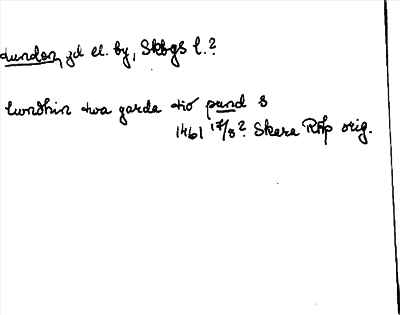 Lundon, gd el. by, Skbgs l.?
lundhin twa garda tio pund s
1461 17/8? Skara RAp orig.